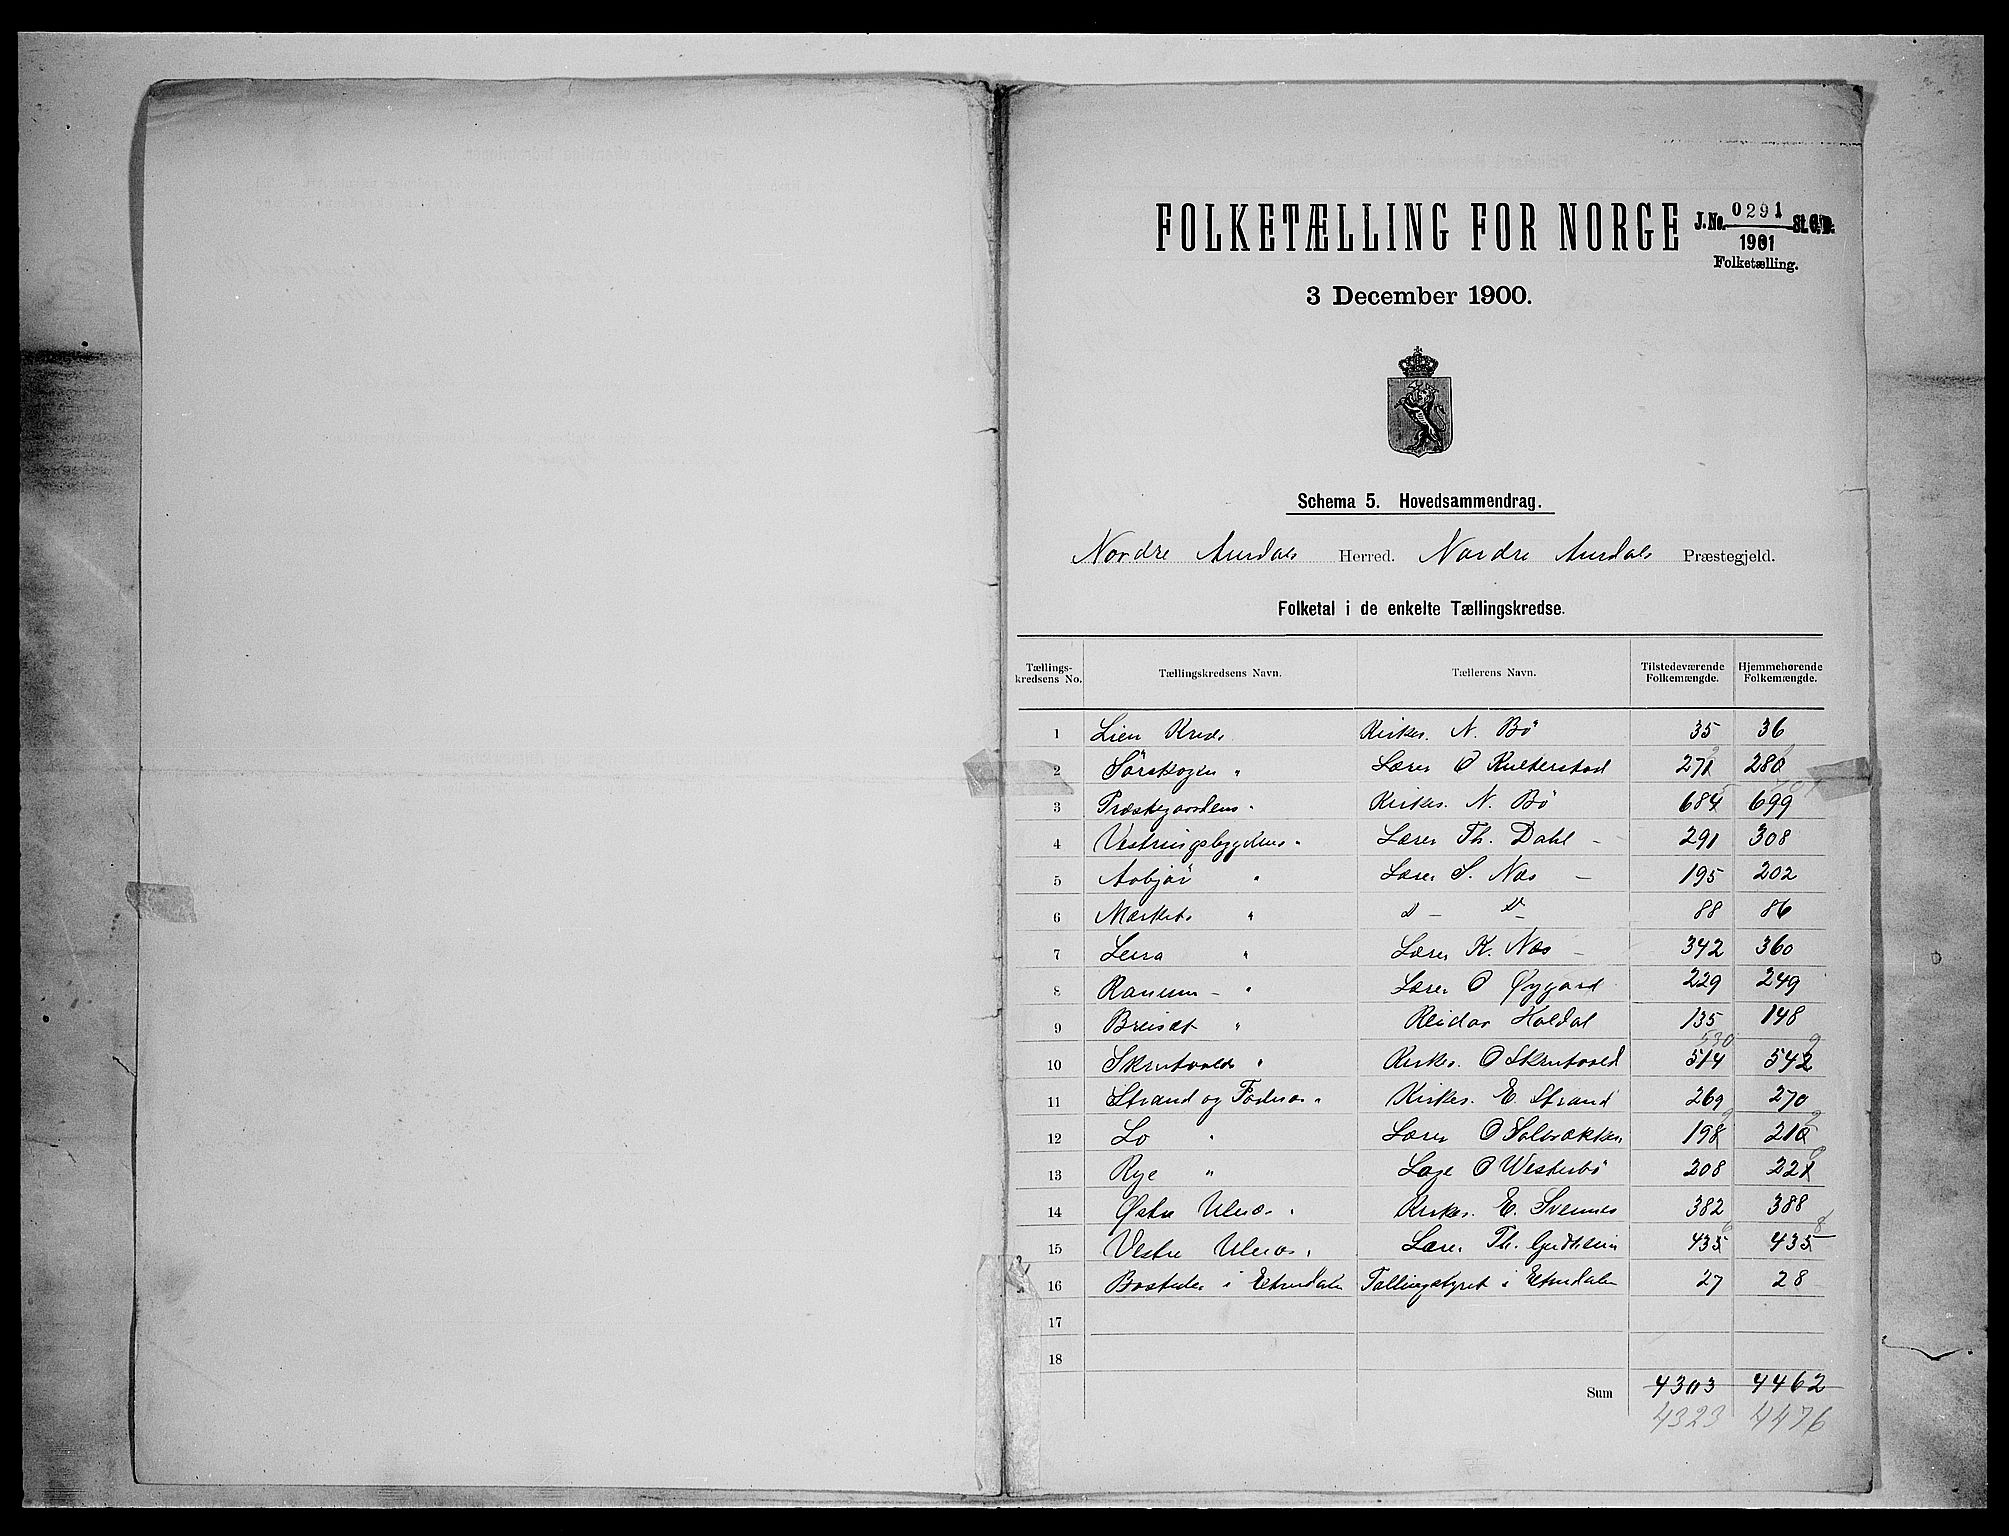 FOLKETÆLLING FOR NORGE
J.No. 0291 St.C.B.
1901
Folketælling.
3 December 1900.
Schema 5. Hovedsammendrag.
Nordre Aurdals Herred. Nordre Aurdals Præstegjeld.
Folketal i de enkelte Tællingskredse.
Tællings-kredsens No. Tællingskredsens Navn. Tællerens Navn. Tilstedeværende Folkemængde. Hjemmehørende Folkemængde.
1 Lien Kreds Kirkes. N. Bö 35 36
2 Sörskogen " Lærer O 271 280
3 Præstegaardens " Kirkes. N. Bö 684 699
4 Vestringsbygdens " Lærer Th. Dahl - 291 308
5 Aabjör " Lærer S. Næs - 195 202
6 Merkets " d - d - 88 86
7 Leira " Lærer K. Næs - 342 360
8 Ranum - " Lærer O Øygard 229 249
9 Breiset " Reidar Holdal 135 148
10 Skrutvolds " Kirkes. O Skrutvold 514 530 542
11 Strand og Fodnæs " Kirkes. E. Strand 269 270
12 Lo " Lærer O 198 210
13 Rye " Lage O Westerbö 208 221
14 Østre Ulnæs " Kirkes. E. Svennes 382 388
15 Vestre Ulnæs " Lærer Th. 435 435
16 Bosteder i Etnedalen Tællingstyret i Etnedalen 27 28
17
18
Sum 4303 4462
4323 4476